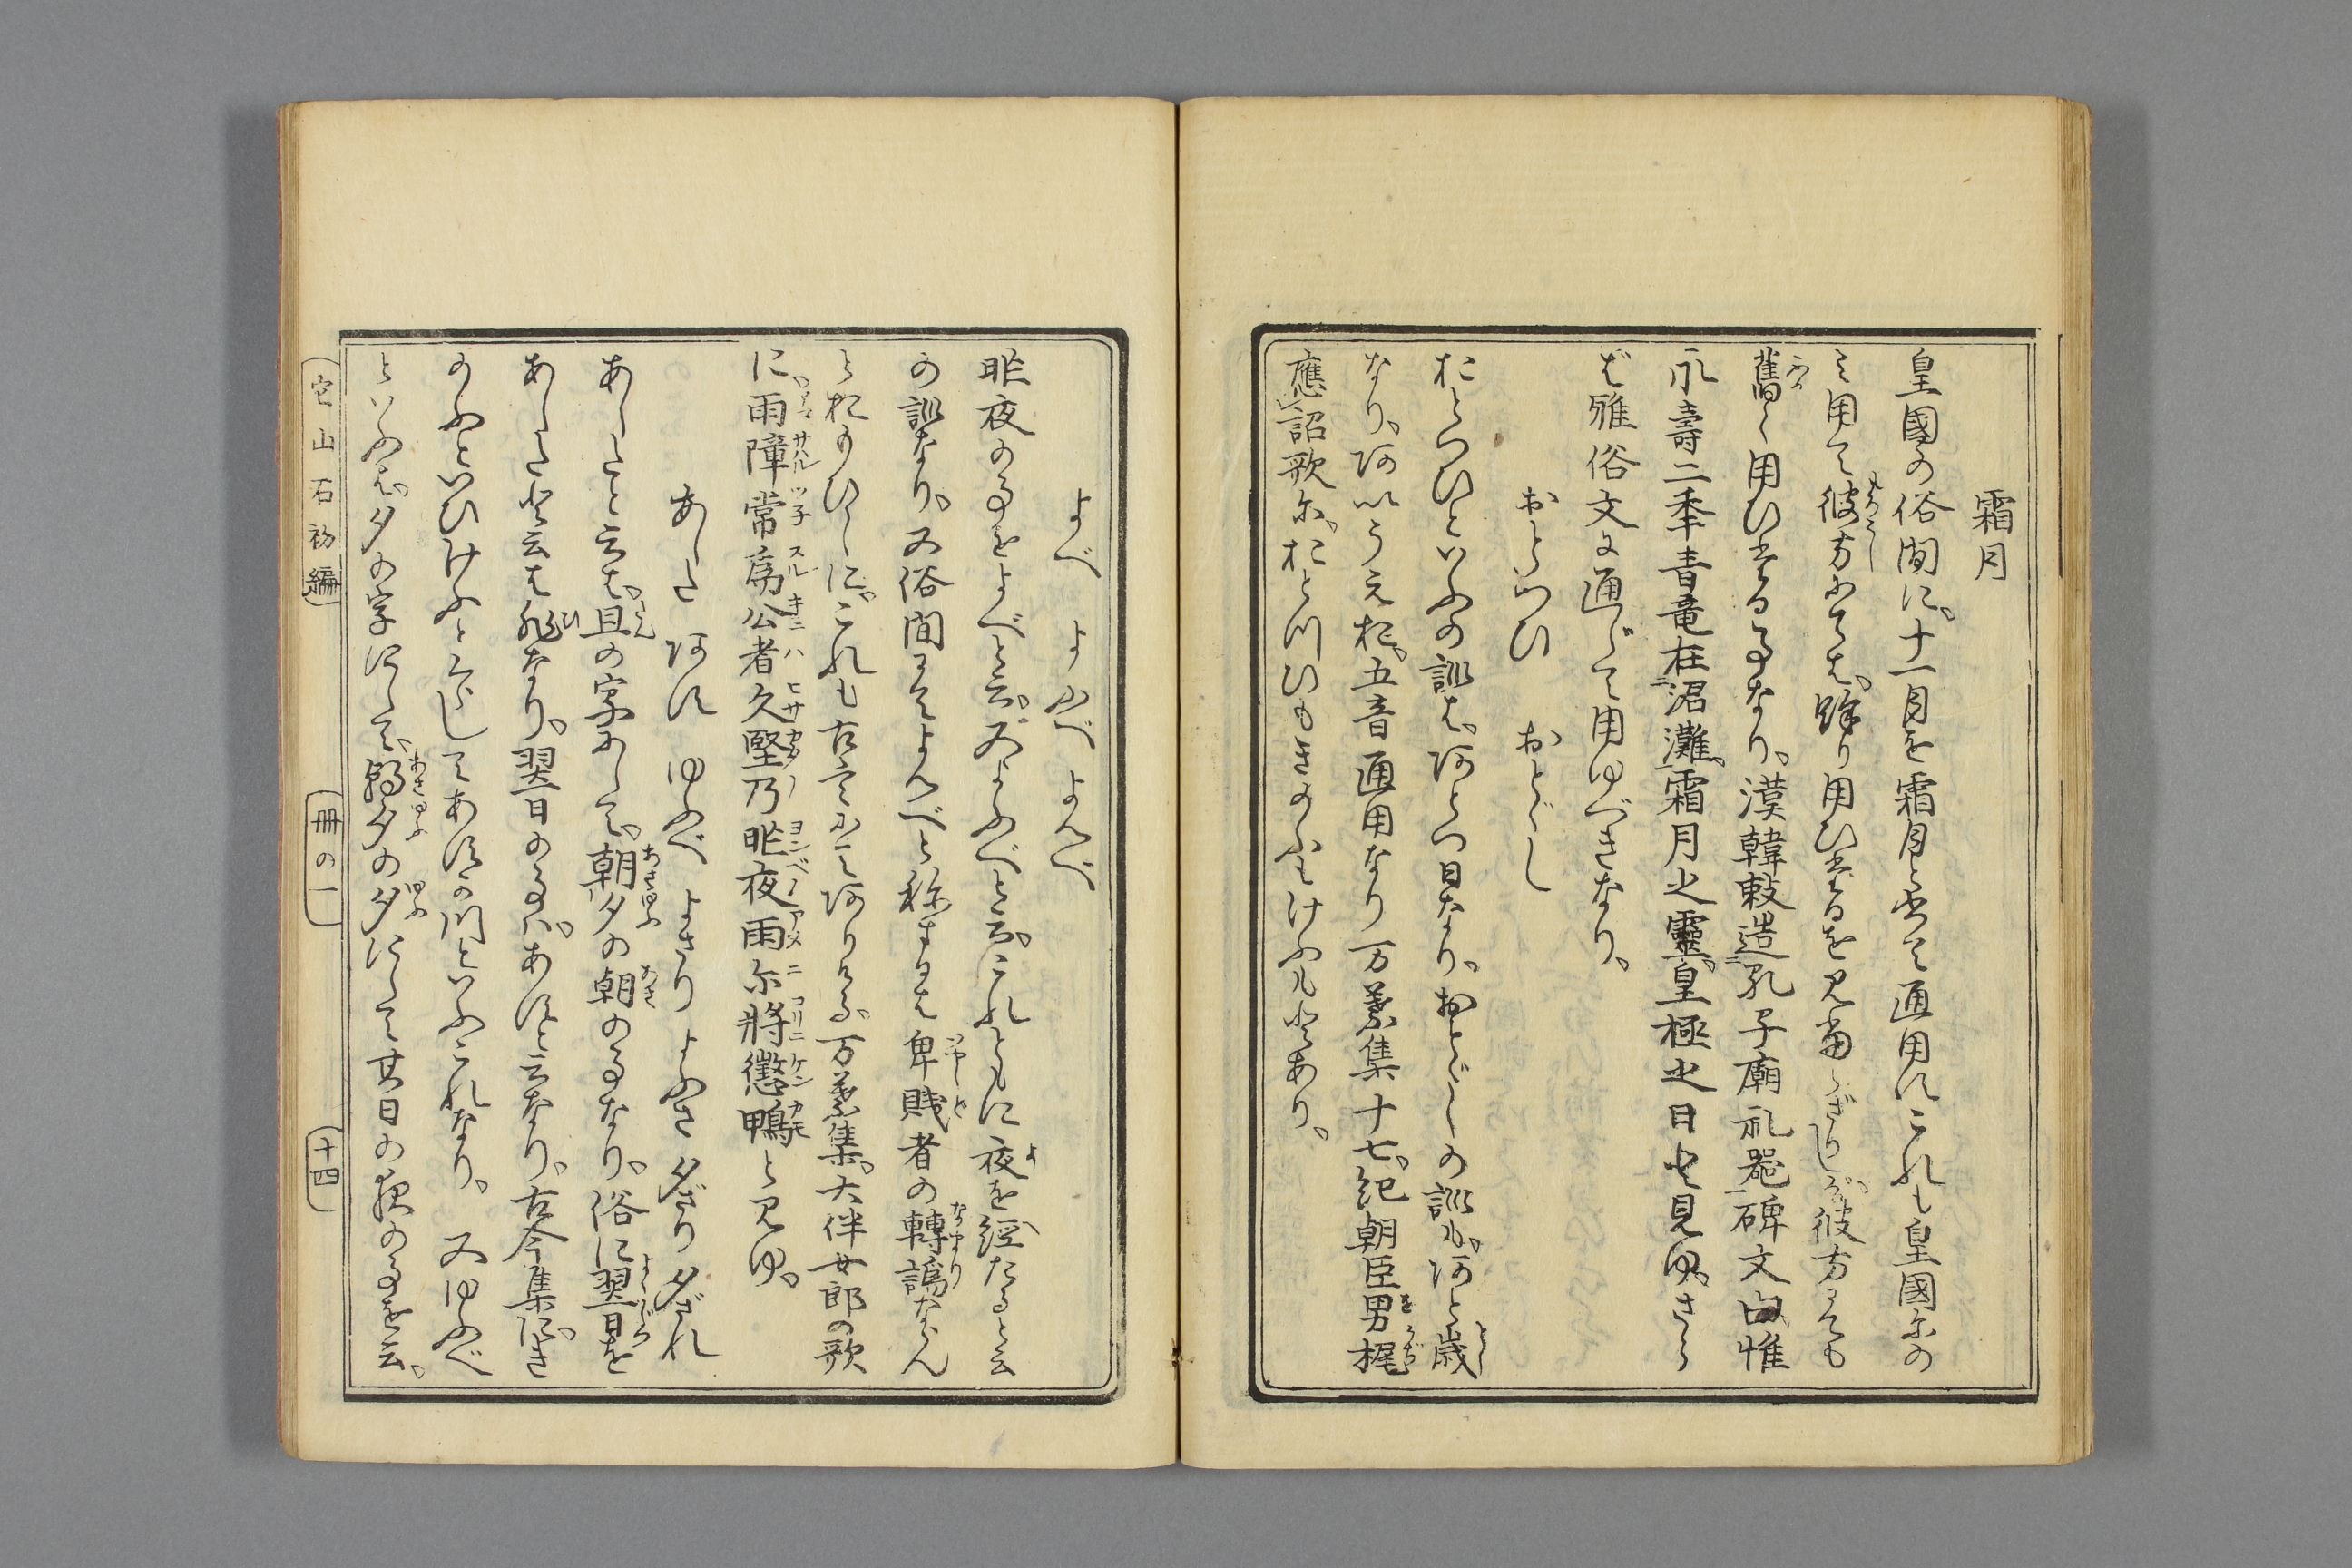 霜月
皇國の俗間に。十一月を霜月と書て通用すこれも皇國尓の
ミ用て彼方にては。餘り用ひざるを見當らざりしが。彼方にても
舊く用ひ来る事なり。漢韓敕造孔子廟礼器碑文曰惟
永壽二季青竜在涒灘。霜月之靈。皇極之日と見ゆ。さら
ば雅俗文に通じて用ゆべきなり。
おとつひ おとゞし
おとつひといふの訓は。阿とつ日なり。おとゞしの訓も。阿と歳
なり。阿いうえお。五音通用なり万葉集十七。紀朝臣男梶
應詔歌尓。おと川ひもきのふもけふも云々あり。
よべ よふべ よんべ
昨夜の事をよべと云。又よふべと云。これともに夜を経たると云
の訓なり。又俗間にてよんべと称するは卑賎者の轉譌ならん
とおもひしに。これも古言にて阿りける。万葉集。大伴女郎の歌
に。雨障常爲公者久堅乃昨夜雨尓將懲鴨と見ゆ。
あした 阿す ゆふべ よさり よふさ 夕ざり 夕ざれ
あしたと云は。旦の字にして。朝夕の朝の事なり。俗に翌日を
あした云は非なり。翌日の事ハ。あすと云なり。古今集に。き
のふといひけふとくらしてあす可川といふこれなり。 又ゆふべ
といふは。夕の字にして。朝夕の夕にして其日の夜の事を云。
宅山石初編
冊の一
十四